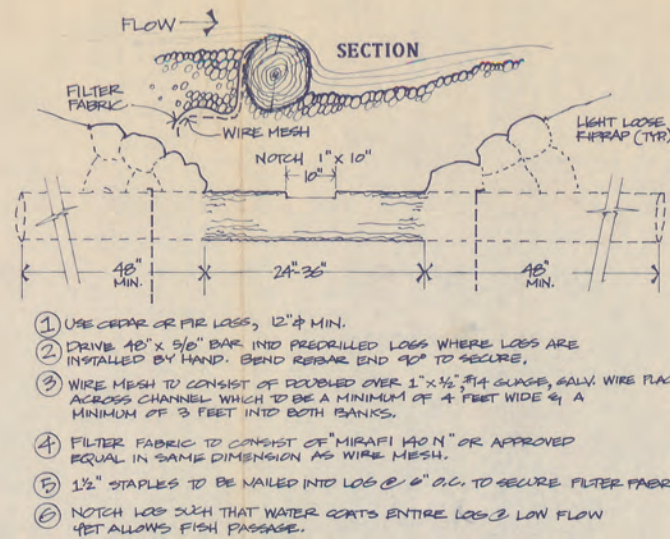 FLOW
SECTION
FILTER
FABRIC
WIRE MESH
LIGHT LOOSE
RIPRAP (TYP.)
NOTCH 1" x 10"
10"
48"
MIN.
24"-36"
48"
MIN.
① USE CEDAR OR FIR LOGS, 12"ϕ MIN.
② DRIVE 48" x 5/8" BAR INTO PREDRILLED LOGS WHERE LOGS ARE
INSTALLED BY HAND. BEND REBAR END 90° TO SECURE.
③ WIRE MESH TO CONSIST OF DOUBLED OVER 1" x ½", #14 GUAGE, GALV. WIRE PLAC
ACROSS CHANNEL WHICH TO BE A MINIMUM OF 4 FEET WIDE & A
MINIMUM OF 3 FEET INTO BOTH BANKS.
④ FILTER FABRIC TO CONSIST OF "MIRAFI 140 N" OR APPROVED
EQUAL IN SAME DIMENSION AS WIRE MESH.
⑤ 1½" STAPLES TO BE NAILED INTO LOG @ 6" O.C. TO SECURE FILTER FABR
⑥ NOTCH LOG SUCH THAT WATER COATS ENTIRE LOG @ LOW FLOW
YET ALLOWS FISH PASSAGE.